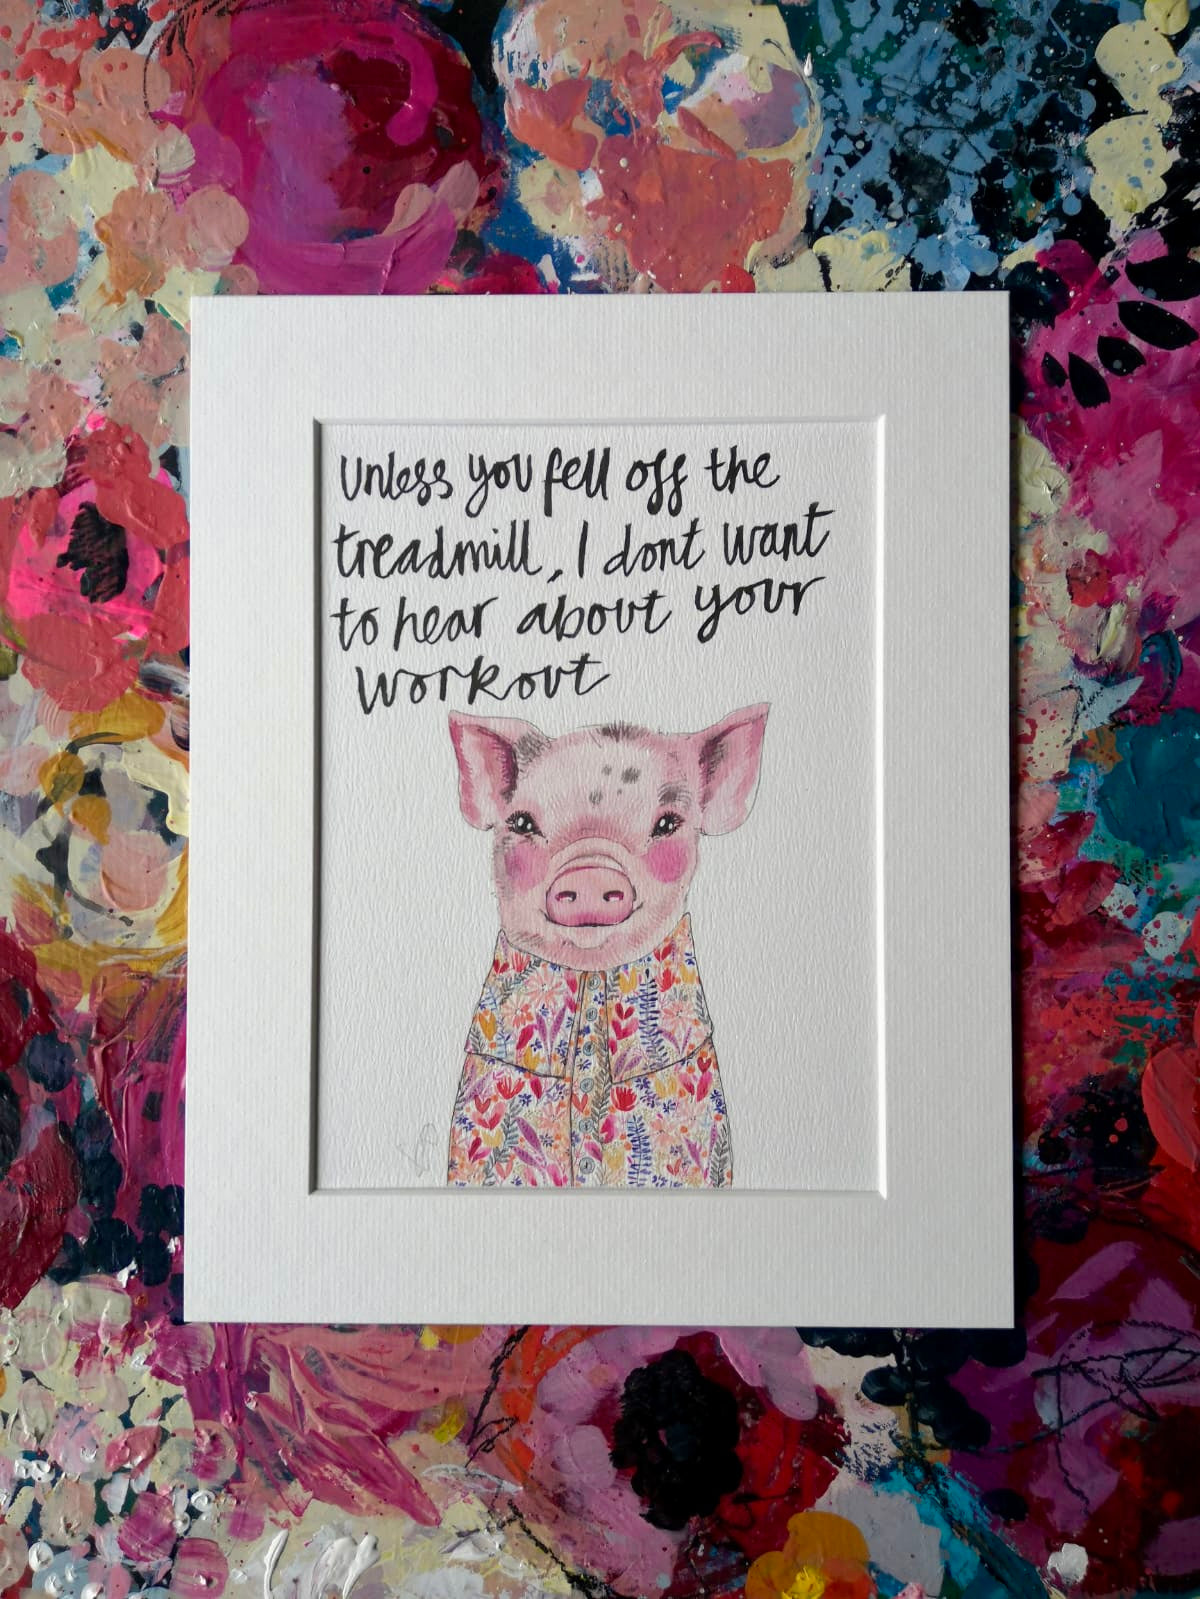 unless you fell off the
treadmill, I dont want
to hear about your
workout